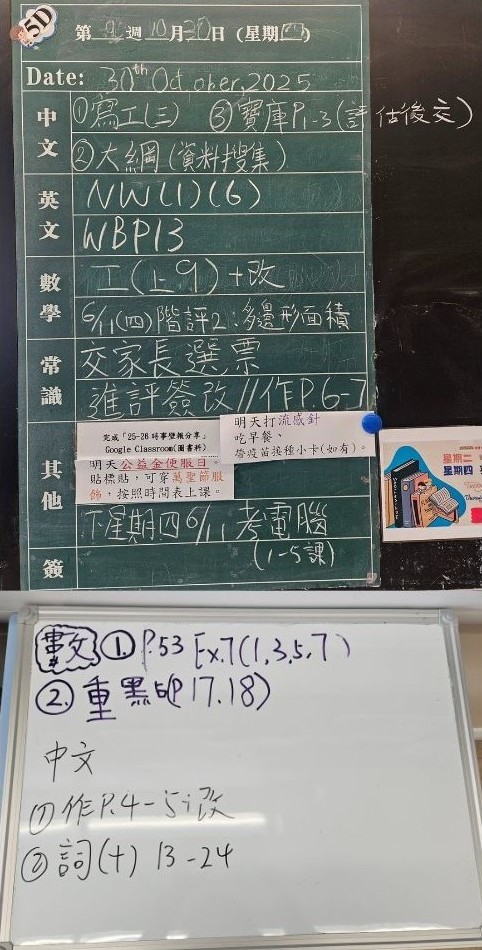 5D
第 9 週 10 月 30 日 (星期四)
Date: 30th October, 2025
中文
①寫工(三) ③寶庫P1-3(評估後交)
②大綱(資料搜集)
英文
NW(1)(6)
WBP13
數學
工(上9)+改
6/11(四)階評2:多邊形面積
常識
交家長選票
進評簽改//作P.6-7
其他
完成「25-26時事壁報分享」
Google Classroom(圖書科)
明天打流感針
吃早餐、
帶疫苗接種小卡(如有)。
明天公益金便服日。
貼標貼,可穿萬聖節服
飾,按照時間表上課。
下星期四6/11考電腦
(1-5課)
簽
星期二
星期四
① P.53 Ex.7(1,3,5,7)
②. 重點(P17.18)
中文
①作P.4-5改
②詞(十) 13-24